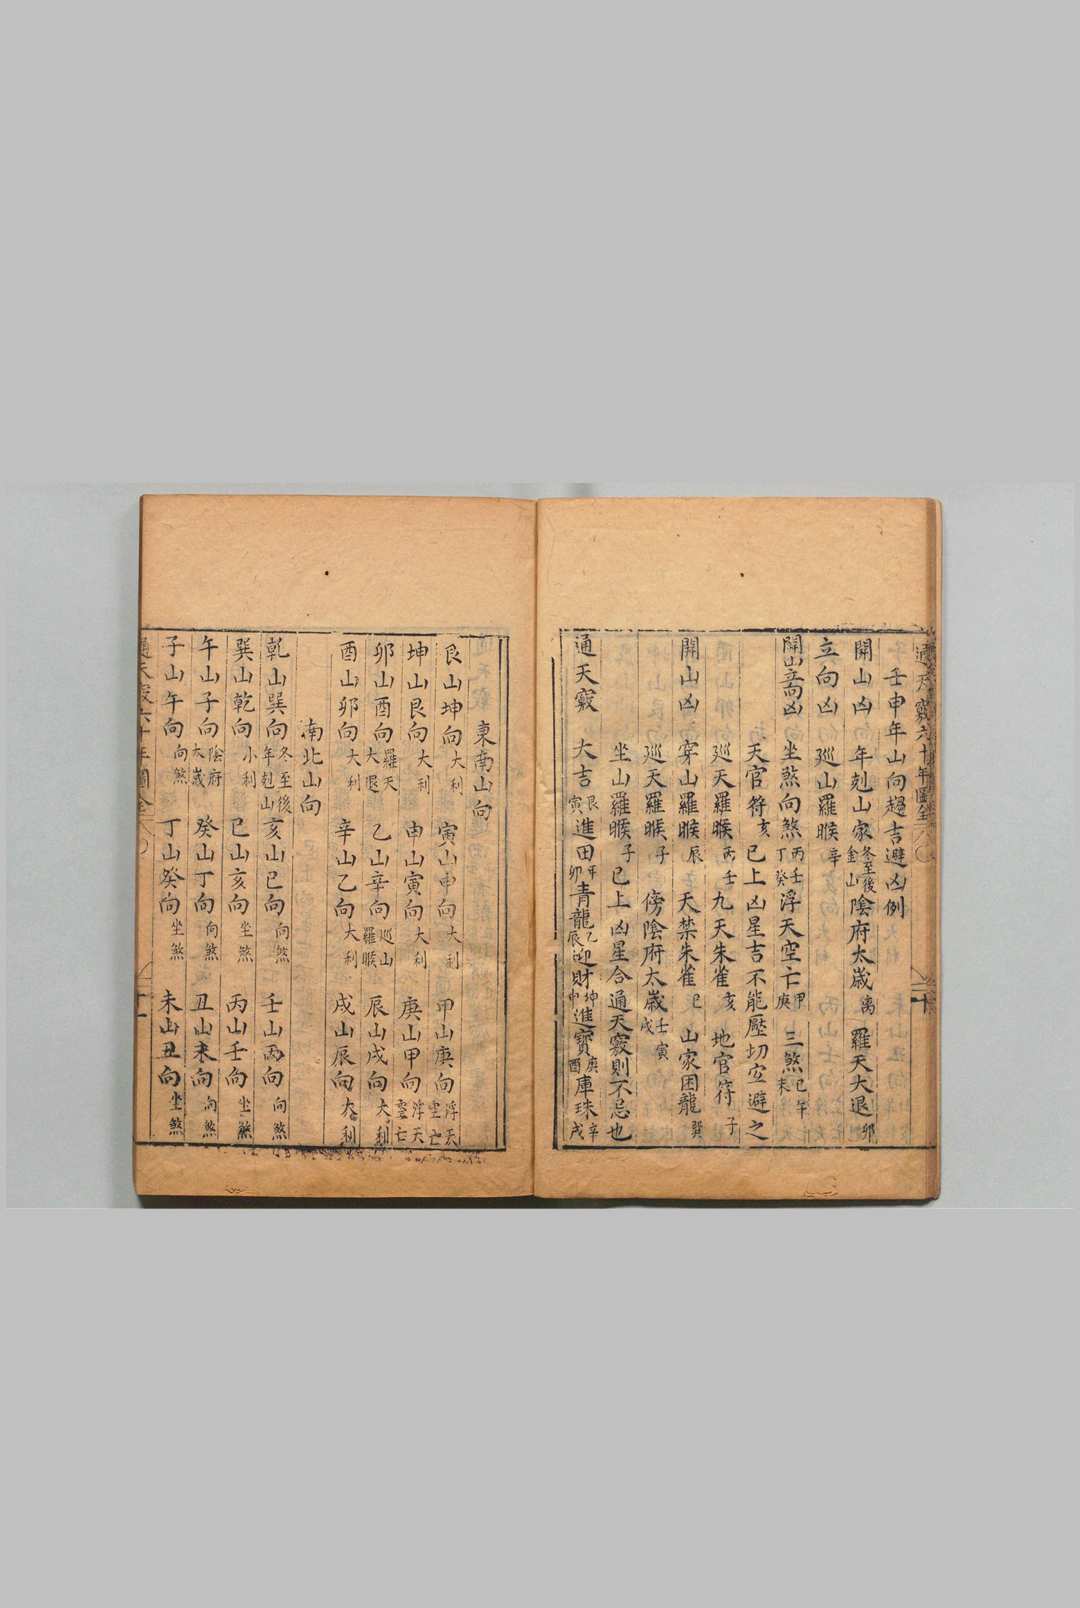 壬申年山向趨吉避凶例
開山凶 年剋山家冬至後金山 陰府太歲离 羅天大退卯
立向凶 巡山羅睺辛
開山立向凶 坐煞向煞丙壬丁癸 浮天空亡甲庚 三煞巳午未
天官符亥 已上凶星吉不能壓切宜避之
巡天羅睺丙壬 九天朱雀亥 地官符子
開山凶 穿山羅睺辰 天禁朱雀巳 山家困龍巽
巡天羅睺子 傍陰府太歲壬寅戌
坐山羅睺子 已上凶星合通天竅則不忌也
通天竅 大吉艮寅 進田甲卯 青龍乙辰 迎財坤申 進寶庚酉 庫珠辛戌
東南山向
艮山坤向大利 寅山申向大利 甲山庚向浮天空亡
坤山艮向大利 申山寅向大利 庚山甲向浮天空亡
卯山酉向羅天大退 乙山辛向巡山羅睺 辰山戌向大利
酉山卯向大利 辛山乙向大利 戌山辰向大利
南北山向
乾山巽向冬至後年剋山 亥山巳向向煞 壬山丙向向煞
巽山乾向小利 巳山亥向坐煞 丙山壬向坐煞
午山子向陰府太歲 癸山丁向向煞 丑山未向向煞
子山午向向煞 丁山癸向坐煞 未山丑向坐煞